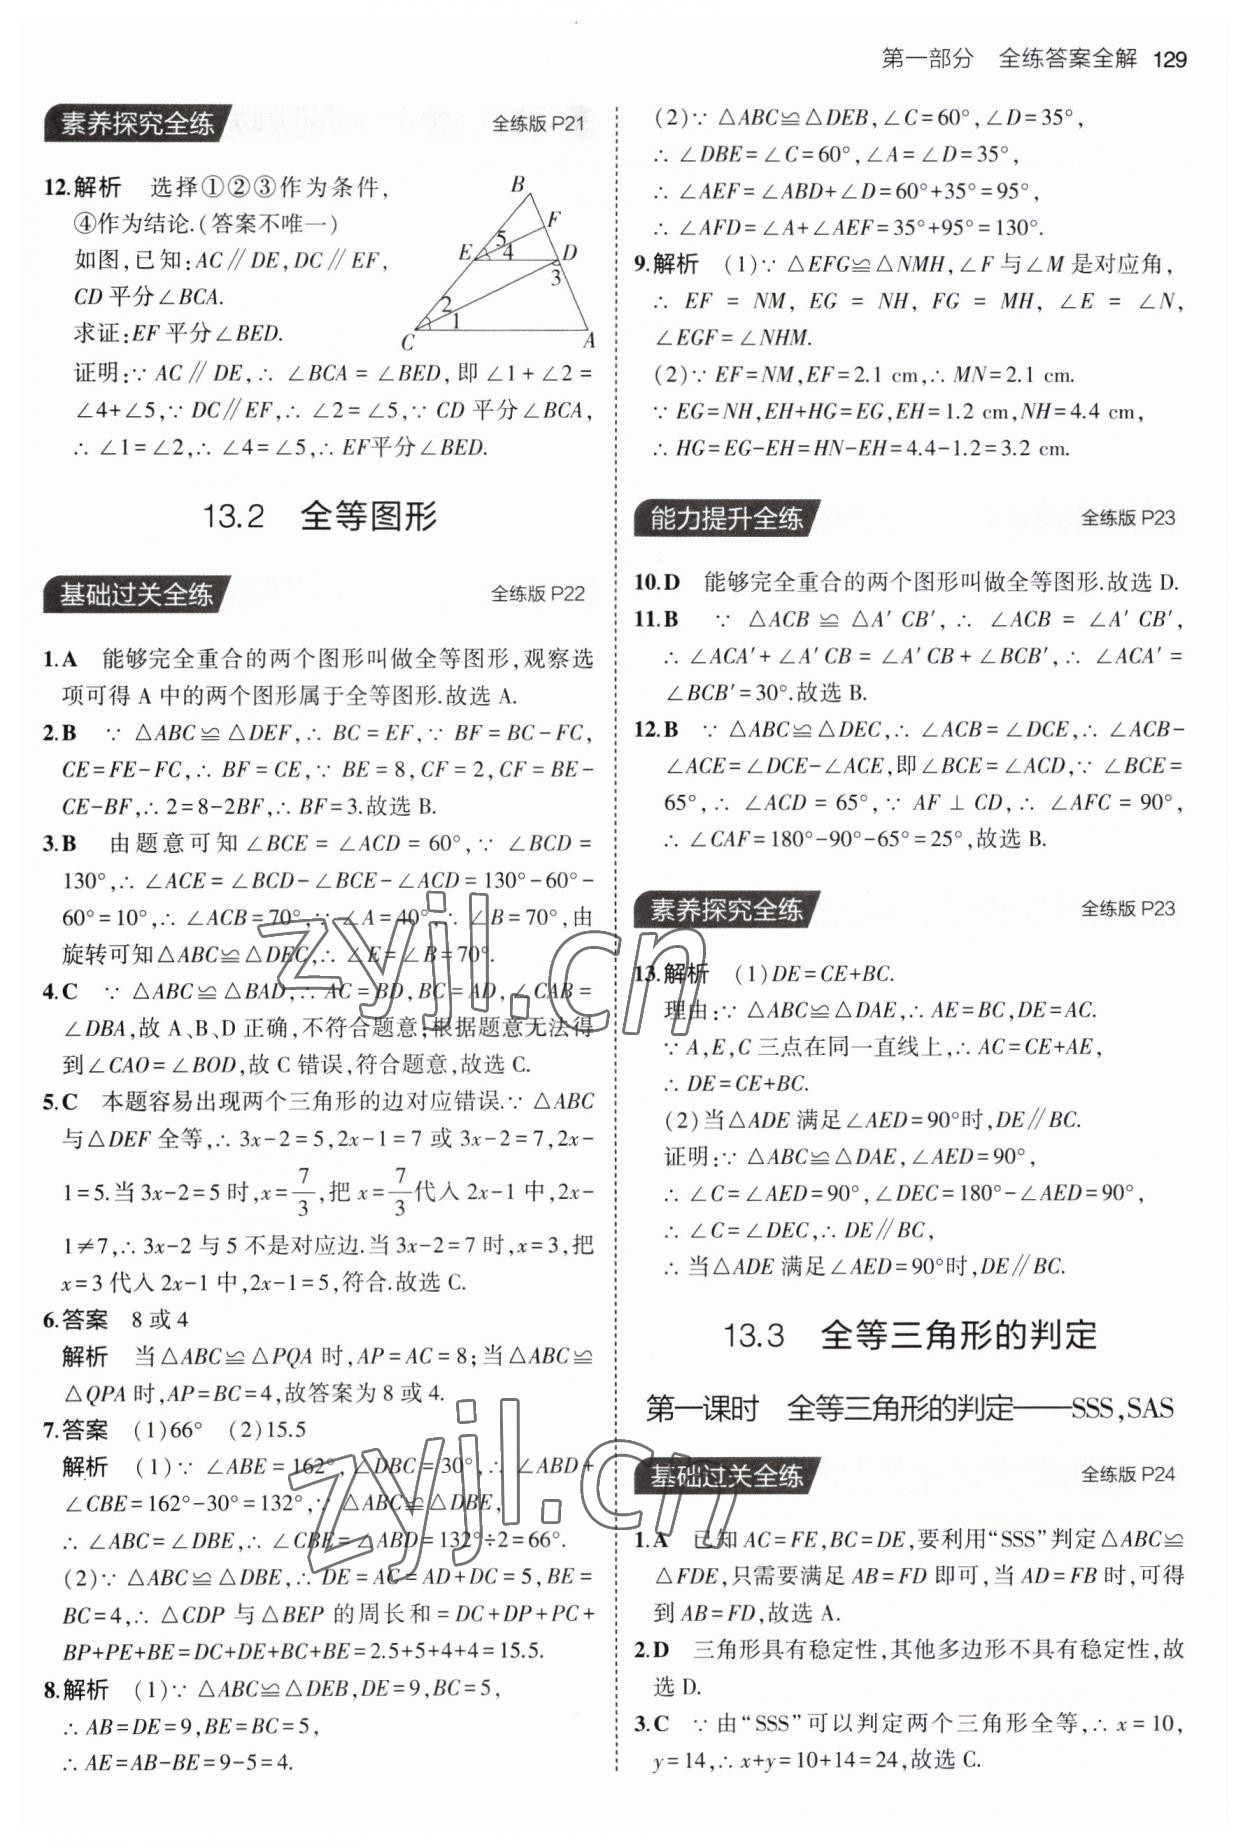 第一部分　全练答案全解　129
素养探究全练　全练版 P21
12.解析　选择①②③作为条件,
④作为结论.(答案不唯一)
如图,已知:AC∥DE,DC∥EF,
CD 平分∠BCA.
求证:EF 平分∠BED.
B
F
E
5
4
D
3
2
1
C
A
证明:∵ AC∥DE,∴ ∠BCA=∠BED,即∠1+∠2=
∠4+∠5,∵ DC∥EF,∴ ∠2=∠5,∵ CD 平分∠BCA,
∴ ∠1=∠2,∴ ∠4=∠5,∴ EF平分∠BED.
13.2　全等图形
基础过关全练　全练版 P22
1.A　能够完全重合的两个图形叫做全等图形,观察选
项可得 A 中的两个图形属于全等图形.故选 A.
2.B　∵ △ABC≌△DEF,∴ BC=EF,∵ BF=BC-FC,
CE=FE-FC,∴ BF=CE,∵ BE=8,CF=2,CF=BE-
CE-BF,∴ 2=8-2BF,∴ BF=3.故选 B.
3.B　由题意可知∠BCE=∠ACD=60°,∵ ∠BCD=
130°,∴ ∠ACE=∠BCD-∠BCE-∠ACD=130°-60°-
60°=10°,∴ ∠ACB=70°,∵ ∠A=40°,∴ ∠B=70°,由
旋转可知△ABC≌△DEC,∴ ∠E=∠B=70°.
4.C　∵ △ABC≌△BAD,∴ AC=BD,BC=AD,∠CAB=
∠DBA,故 A、B、D 正确,不符合题意;根据题意无法得
到∠CAO=∠BOD,故 C 错误,符合题意,故选 C.
5.C　本题容易出现两个三角形的边对应错误.∵ △ABC
与△DEF 全等,∴ 3x-2=5,2x-1=7 或 3x-2=7,2x-
1=5.当 3x-2=5 时,x=7/3,把 x=7/3代入 2x-1 中,2x-
1≠7,∴ 3x-2 与 5 不是对应边.当 3x-2=7 时,x=3,把
x=3 代入 2x-1 中,2x-1=5,符合.故选 C.
6.答案　8 或 4
解析　当△ABC≌△PQA 时,AP=AC=8;当△ABC≌
△QPA 时,AP=BC=4,故答案为 8 或 4.
7.答案　(1)66°　(2)15.5
解析　(1)∵ ∠ABE=162°,∠DBC=30°,∴ ∠ABD+
∠CBE=162°-30°=132°,∵ △ABC≌△DBE,
∴ ∠ABC=∠DBE,∴ ∠CBE=∠ABD=132°÷2=66°.
(2)∵ △ABC≌△DBE,∴ DE=AC=AD+DC=5,BE=
BC=4,∴ △CDP 与△BEP 的周长和=DC+DP+PC+
BP+PE+BE=DC+DE+BC+BE=2.5+5+4+4=15.5.
8.解析　(1)∵ △ABC≌△DEB,DE=9,BC=5,
∴ AB=DE=9,BE=BC=5,
∴ AE=AB-BE=9-5=4.
(2)∵ △ABC≌△DEB,∠C=60°,∠D=35°,
∴ ∠DBE=∠C=60°,∠A=∠D=35°,
∴ ∠AEF=∠ABD+∠D=60°+35°=95°,
∴ ∠AFD=∠A+∠AEF=35°+95°=130°.
9.解析　(1)∵ △EFG≌△NMH,∠F 与∠M 是对应角,
∴ EF = NM, EG = NH, FG = MH, ∠E = ∠N,
∠EGF=∠NHM.
(2)∵ EF=NM,EF=2.1 cm,∴ MN=2.1 cm.
∵ EG=NH,EH+HG=EG,EH=1.2 cm,NH=4.4 cm,
∴ HG=EG-EH=HN-EH=4.4-1.2=3.2 cm.
能力提升全练　全练版 P23
10.D　能够完全重合的两个图形叫做全等图形.故选 D.
11.B　∵ △ACB ≌ △A′CB′,∴ ∠ACB = ∠A′CB′,
∴ ∠ACA′+∠A′CB=∠A′CB+∠BCB′,∴ ∠ACA′=
∠BCB′=30°.故选 B.
12.B　∵ △ABC≌△DEC,∴ ∠ACB=∠DCE,∴ ∠ACB-
∠ACE=∠DCE-∠ACE,即∠BCE=∠ACD,∵ ∠BCE=
65°,∴ ∠ACD=65°,∵ AF⊥CD,∴ ∠AFC=90°,
∴ ∠CAF=180°-90°-65°=25°,故选 B.
素养探究全练　全练版 P23
13.解析　(1)DE=CE+BC.
理由:∵ △ABC≌△DAE,∴ AE=BC,DE=AC.
∵ A,E,C 三点在同一直线上,∴ AC=CE+AE,
∴ DE=CE+BC.
(2)当△ADE 满足∠AED=90°时,DE∥BC.
证明:∵ △ABC≌△DAE,∠AED=90°,
∴ ∠C=∠AED=90°,∠DEC=180°-∠AED=90°,
∴ ∠C=∠DEC,∴ DE∥BC,
∴ 当△ADE 满足∠AED=90°时,DE∥BC.
13.3　全等三角形的判定
第一课时　全等三角形的判定——SSS,SAS
基础过关全练　全练版 P24
1.A　已知 AC=FE,BC=DE,要利用“SSS”判定△ABC≌
△FDE,只需要满足 AB=FD 即可,当 AD=FB 时,可得
到 AB=FD,故选 A.
2.D　三角形具有稳定性,其他多边形不具有稳定性,故
选 D.
3.C　∵ 由“SSS”可以判定两个三角形全等,∴ x=10,
y=14,∴ x+y=10+14=24,故选 C.
zyjl.cn
zyjl.cn